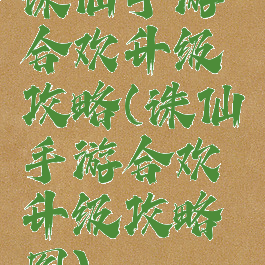 诛仙手游
合欢升级
攻略(诛仙
手游合欢
升级攻略
图)